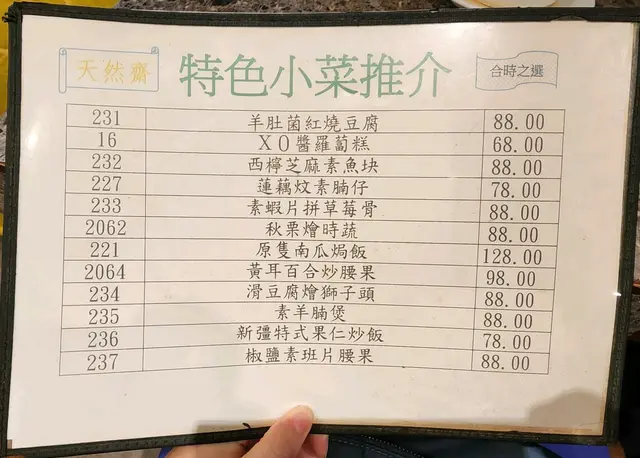 天然齋
特色小菜推介
合時之選
231 羊肚菌紅燒豆腐 88.00
16 XO醬羅蔔糕 68.00
232 西檸芝麻素魚块 88.00
227 蓮藕炆素腩仔 78.00
233 素蝦片拼草莓骨 88.00
2062 秋栗燴時蔬 88.00
221 原隻南瓜焗飯 128.00
2064 黃耳百合炒腰果 98.00
234 滑豆腐燴獅子頭 88.00
235 素羊腩煲 88.00
236 新疆特式果仁炒飯 78.00
237 椒鹽素班片腰果 88.00